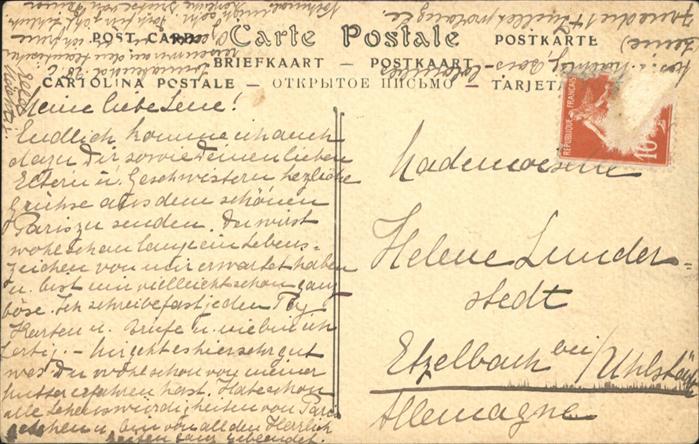 Carte Postale
POST CARD
POSTKARTE
BRIEFKAART — POSTKAART —
CARTOLINA POSTALE — ОТКРЫТОЕ ПИСЬМО — TARJETA
REPUBLIQUE FRANÇAISE
10
Meine liebe Lene!
Endlich komme ich auch
dazu Dir sowie Deinen lieben
Eltern u. Geschwistern herzliche
Grüsse aus dem schönen
Paris zu senden. Du wirst
wohl schon lange ein Lebens-
zeichen von mir erwartet haben
u. bist mir vielleicht schon ganz
böse. Ich schreibe fast jeden Tag
Karten u. Briefe u. nie bin ich
fertig. – Mir geht es hier sehr gut
was Du wohl schon von meiner
Mutter erfahren hast. Habe schon
alle Sehenswürdigkeiten von Paris
gesehen u. bin von all den Herrlich
keiten ganz geblendet.
Mademoiselle
Helene Lunder-
stedt
Etzelbach bei Uhlstädt
Allemagne